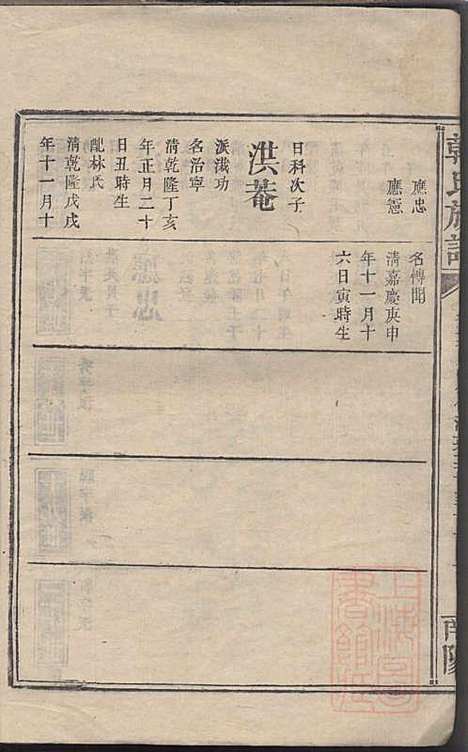 韓氏族譜
南陽
應忠
應憲
日科次子
洪菴
派諓功
名治寧
清乾隆丁亥
年正月二十
日丑時生
配林氏
清乾隆戊戌
年十一月十
名傳聞
清嘉慶庚申
年十一月十
六日寅時生